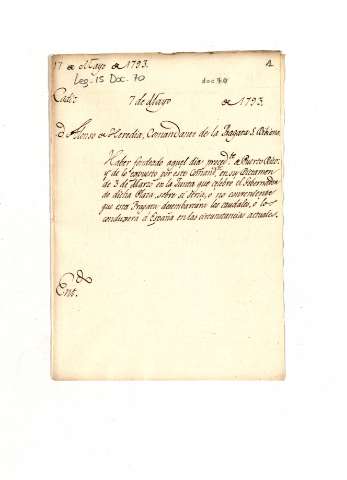 7 de Mayo de 1793.
4
Leg. 15 Doc. 70
doc 70
Cadiz 7 de Mayo de 1793.
Dn Alonso de Heredia, Comandante de la Fragata S.
Haber fondeado aquel dia proced.te de Puerto Rico:
y de lo expuesto por este Comand.te en su Dictamen
de 3 de Marzo en la Junta que celebró el Gobernador
de dicha Plaza, sobre si sería, o no conveniente
que esta Fragata desembarcara los caudales, o los
conduxera a España en las circunstancias actuales.
Ent.do